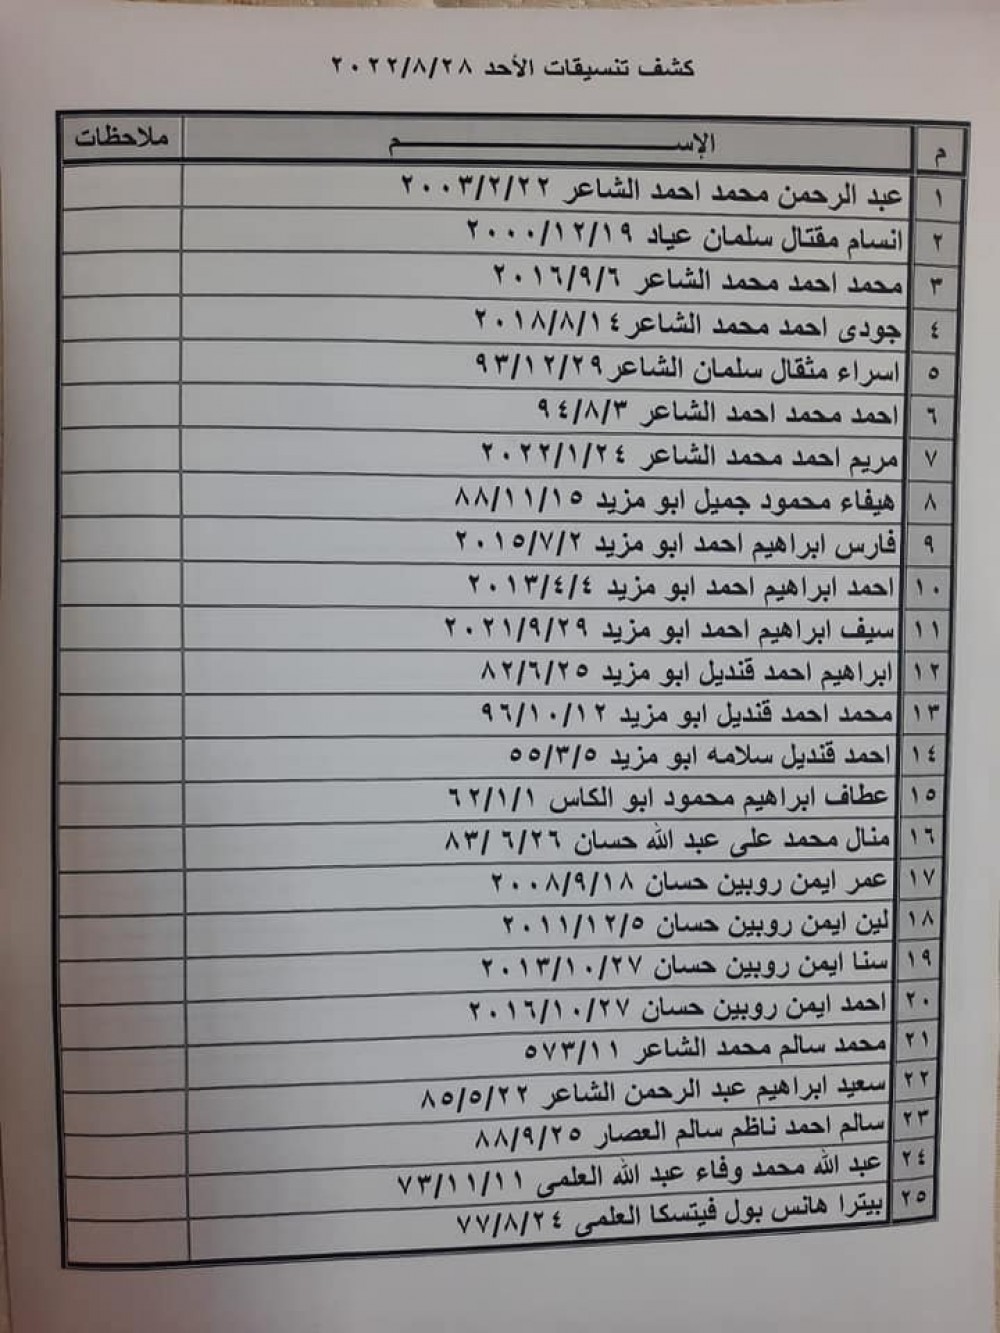 كشف تنسيقات الأحد ٢٠٢٢/٨/٢٨
م الإســـــــــم ملاحظات
١ عبد الرحمن محمد احمد الشاعر ٢٠٠٣/٢/٢٢
٢ انسام مقتال سلمان عياد ٢٠٠٠/١٢/١٩
٣ محمد احمد محمد الشاعر ٢٠١٦/٩/٦
٤ جودى احمد محمد الشاعر ٢٠١٨/٨/١٤
٥ اسراء مثقال سلمان الشاعر ٩٣/١٢/٢٩
٦ احمد محمد احمد الشاعر ٩٤/٨/٣
٧ مريم احمد محمد الشاعر ٢٠٢٢/١/٢٤
٨ هيفاء محمود جميل ابو مزيد ٨٨/١١/١٥
٩ فارس ابراهيم احمد ابو مزيد ٢٠١٥/٧/٢
١٠ احمد ابراهيم احمد ابو مزيد ٢٠١٣/٤/٤
١١ سيف ابراهيم احمد ابو مزيد ٢٠٢١/٩/٢٩
١٢ ابراهيم احمد قنديل ابو مزيد ٨٢/٦/٢٥
١٣ محمد احمد قنديل ابو مزيد ٩٦/١٠/١٢
١٤ احمد قنديل سلامه ابو مزيد ٥٥/٣/٥
١٥ عطاف ابراهيم محمود ابو الكاس ٦٢/١/١
١٦ منال محمد على عبد الله حسان ٨٣/٦/٢٦
١٧ عمر ايمن روبين حسان ٢٠٠٨/٩/١٨
١٨ لين ايمن روبين حسان ٢٠١١/١٢/٥
١٩ سنا ايمن روبين حسان ٢٠١٣/١٠/٢٧
٢٠ احمد ايمن روبين حسان ٢٠١٦/١٠/٢٧
٢١ محمد سالم محمد الشاعر ٥٧٣/١١
٢٢ سعيد ابراهيم عبد الرحمن الشاعر ٨٥/٥/٢٢
٢٣ سالم احمد ناظم سالم العصار ٨٨/٩/٢٥
٢٤ عبد الله محمد وفاء عبد الله العلمى ٧٣/١١/١١
٢٥ بيترا هانس بول فيتسكا العلمى ٧٧/٨/٢٤